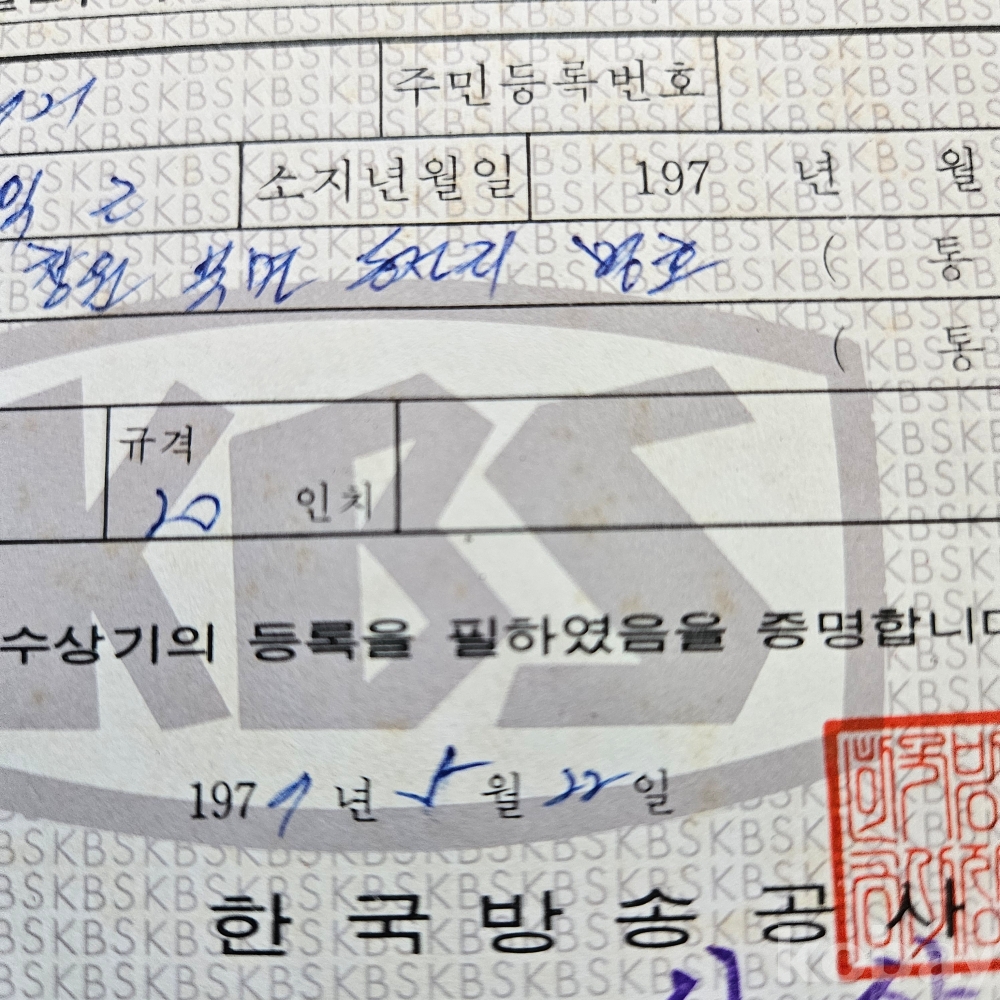 주민등록번호
근 소지년월일 197 년 월
창원 북면 ( 통
( 통
규격
20 인치
KBS
수상기의 등록을 필하였음을 증명합니다
1977 년 5 월 22 일
한국방송공사